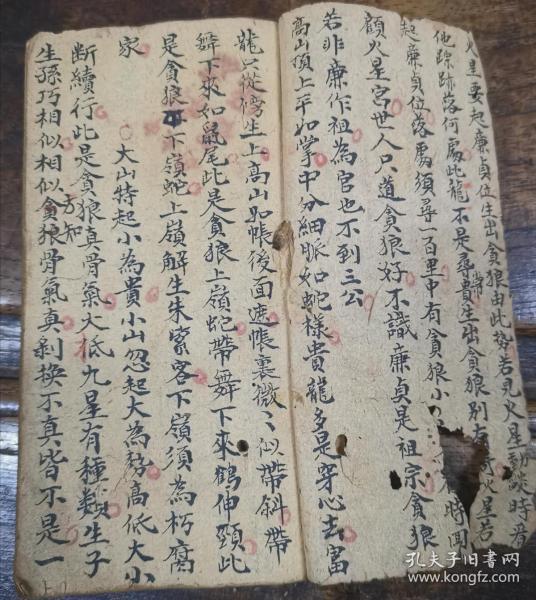 火星要起廉貞位生出貪狼由此势若見火星動燄時看
他踪跡落何處此龍不是尋常貴生出貪狼別有
火星若
起廉貞位落處須尋一百里中有貪狼小
時聞
顧火星宮世人只道貪狼好不識廉貞是祖宗貪狼
若非廉作祖為官也不到三公
高山頂上平如掌中分細脈如蛇樣貴龍多是穿心去富
龍只從傍生上高山如帳後面遮帳裏微々似帶斜帶
舞下來如鼠尾此是貪狼上嶺蛇帶舞下來鶴伸頸此
是貪狼下嶺蛇上嶺解生朱紫客下嶺須為朽腐
家
○大山特起小為貴小山忽起大為勢高低大小
断續行此是貪狼真骨氣大抵九星有種類生子
生孫巧相似相似方知貪狼骨氣真剝換不真皆不是一
孔夫子旧书网
www.kongfz.com